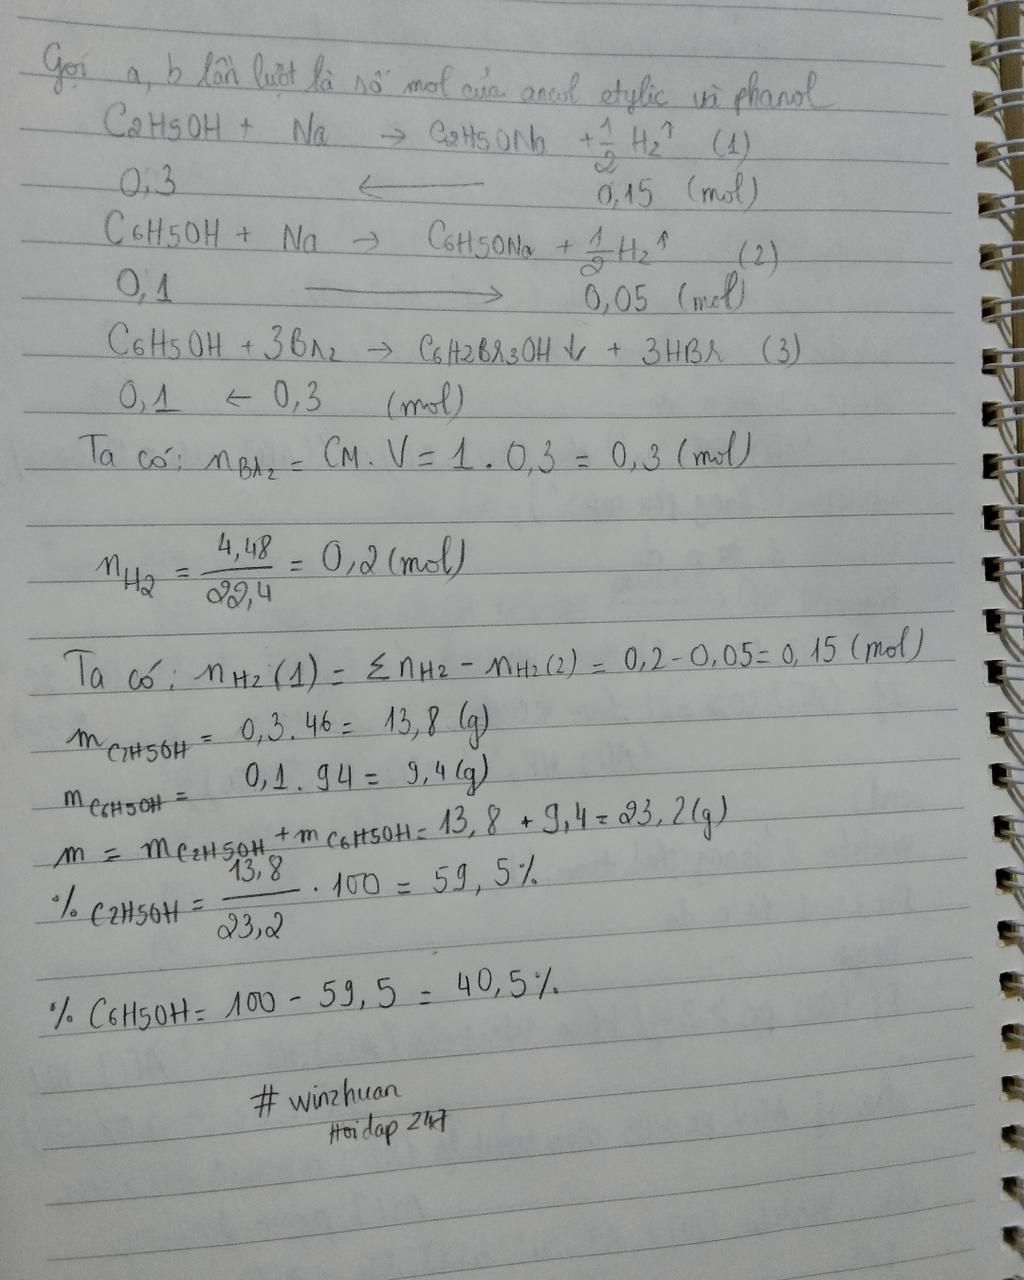 Gọi a, b lần lượt là số mol của ancol etylic và phanol
C2H5OH + Na → C2H5ONa + 1/2 H2↑ (1)
0,3 ← 0,15 (mol)
C6H5OH + Na → C6H5ONa + 1/2 H2↑ (2)
0,1 → 0,05 (mol)
C6H5OH + 3Br2 → C6H2Br3OH↓ + 3HBr (3)
0,1 ← 0,3 (mol)
Ta có: nBr2 = CM. V = 1 . 0,3 = 0,3 (mol)
nH2 = 4,48/22,4 = 0,2 (mol)
Ta có: nH2 (1) = ΣnH2 - nH2(2) = 0,2 - 0,05 = 0,15 (mol)
mC2H5OH = 0,3. 46 = 13,8 (g)
mC6H5OH = 0,1. 94 = 9,4 (g)
m = mC2H5OH + mC6H5OH = 13,8 + 9,4 = 23,2 (g)
% C2H5OH = 13,8/23,2 . 100 = 59,5%
% C6H5OH = 100 - 59,5 = 40,5%
# winzhuan
Hoidap 247